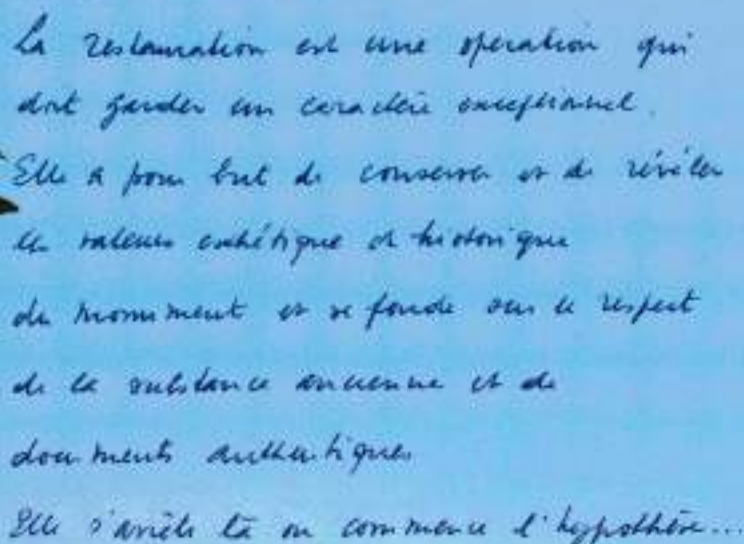 La restauration est une operation qui
doit garder un caractère exceptionnel.
Elle a pour but de conserver et de révéler
les valeurs esthétique et historique
du monument et se fonde sur le respect
de la substance ancienne et de
documents authentiques
Elle s'arrête là ou commence l'hypothèse...